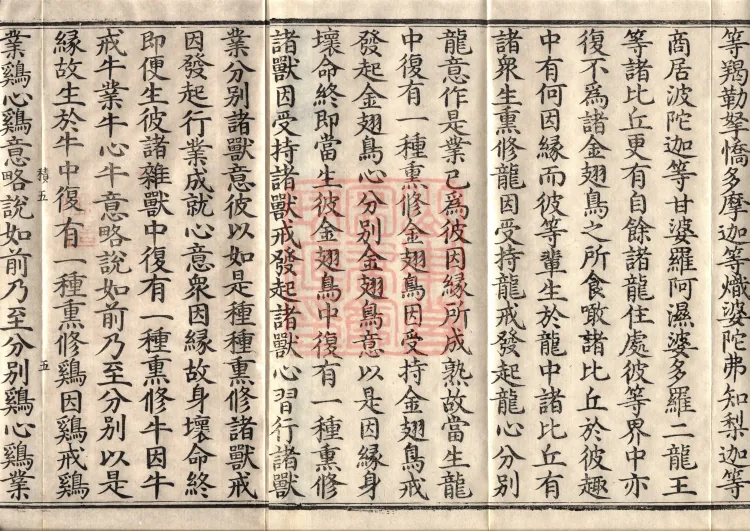 等羯勒拏憍多摩迦等熾婆陀弗知梨迦等
商居波陀迦等甘婆羅阿濕婆多羅二龍王
等諸比丘更有自餘諸龍住處彼等界中亦
復不為諸金翅鳥之所食噉諸比丘於彼趣
中有何因緣而彼等輩生於龍中諸比丘有
諸衆生熏修龍因受持龍戒發起龍心分別
龍意作是業已為彼因緣所成熟故當生龍
中復有一種熏修金翅鳥因受持金翅鳥戒
發起金翅鳥心分別金翅鳥意以是因緣身
壞命終即當生彼金翅鳥中復有一種熏修
諸獸因受持諸獸戒發起諸獸心習行諸獸
業分別諸獸意彼以如是種種熏修諸獸戒
因發起行業成就心意衆因緣故身壞命終
即便生彼諸雜獸中復有一種熏修牛因牛
戒牛業牛心牛意略說如前乃至分別以是
緣故生於牛中復有一種熏修鷄因鷄戒鷄
積五 五
業鷄心鷄意略說如前乃至分別鷄心鷄業